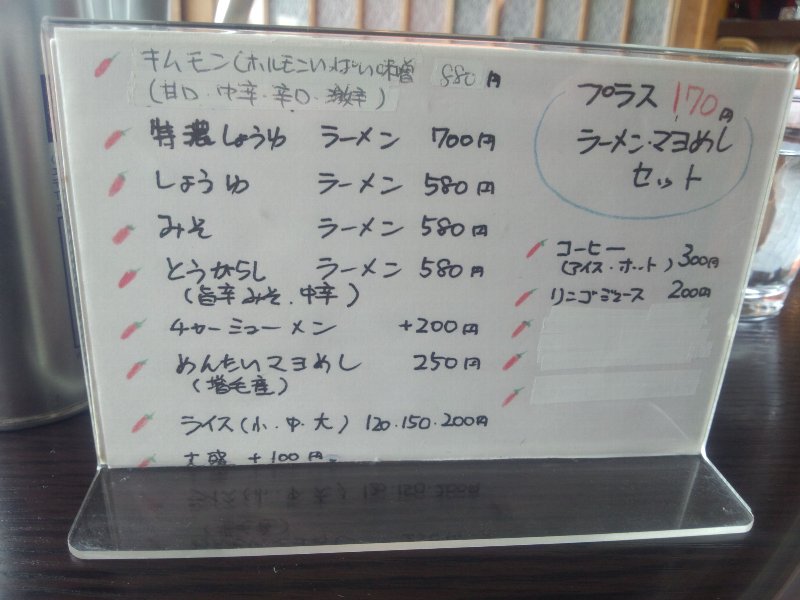 キムモン(ホルモンいっぱい味噌 880円
(甘口・中辛・辛口・激辛)
特濃しょうゆ ラーメン 700円
しょうゆ ラーメン 580円
みそ ラーメン 580円
とうがらし ラーメン 580円
(旨辛みそ・中辛)
チャーシューメン +200円
めんたいマヨめし 250円
(増毛産)
ライス(小・中・大) 120・150・200円
大盛 +100円
プラス 170円
ラーメン・マヨめし
セット
コーヒー 300円
(アイス・ホット)
リンゴジュース 200円